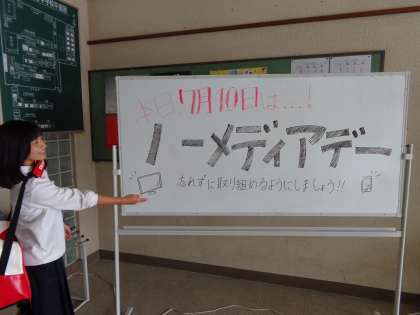 本日、7月10日は…!
ノーメディアデー
忘れずに取り組めるようにしましょう!!